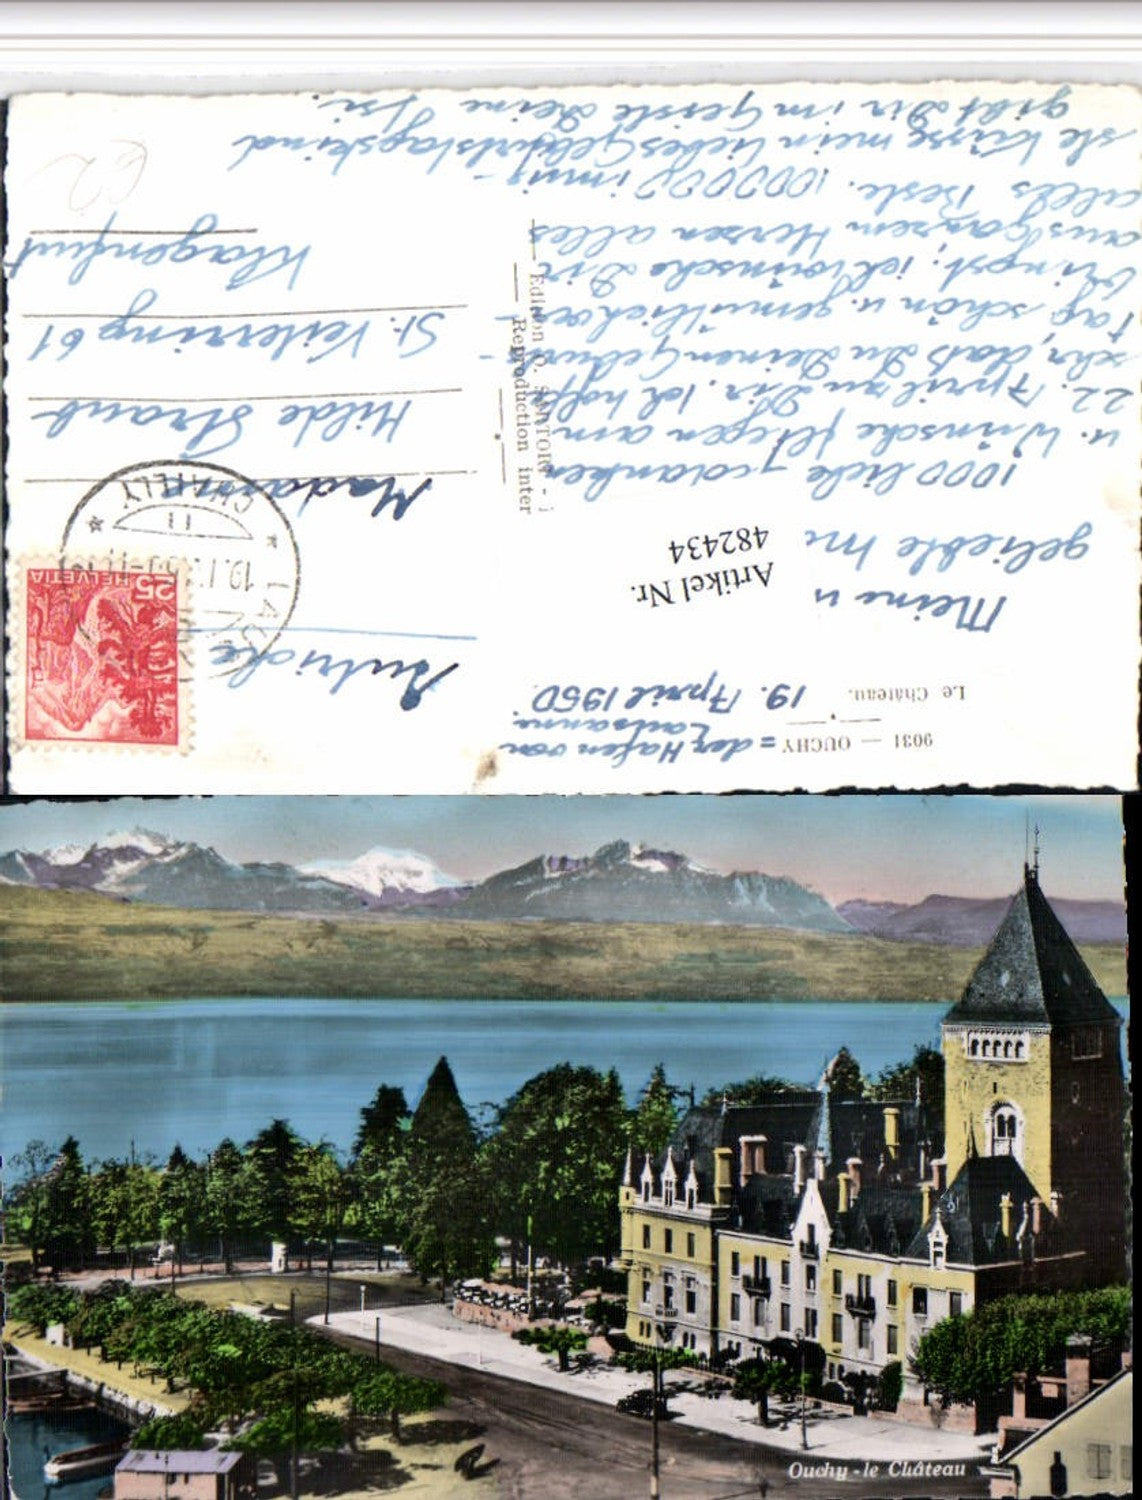 9031 — OUCHY = der Hafen von
Lausanne
Le Château.
19. April 1950.
Meine
geliebte
Artikel Nr.
482434
1000 liebe Gedanken
u. Wünsche fliegen am
22. April zu Dir. Ich hoffe
sehr, daß Du Deinen Geburts-
tag schön u. gemütlich ver-
bringst; ich wünsche Dir
aus ganzem Herzen alles
alles Beste. 1000000 innig-
ste Küsse mein liebes Geburtstagskind
gibt Dir im Geiste Deine
Edition O. SARTORI
Reproduction inter
Autriche
25
HELVETIA
LAUSANNE
19.IV.50-11
CHAILLY
Madame
Hilde Straub
St. Veiterring 61
Klagenfurt
62
Ouchy - le Château